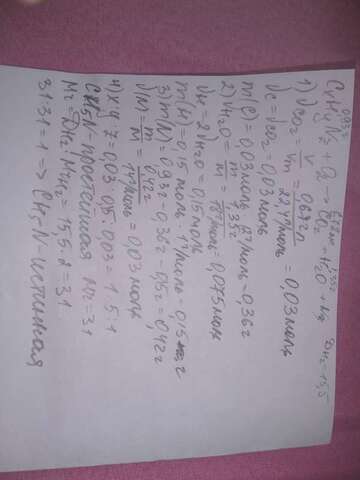 0,93г 0,672л 1,35г
CxHyNz + O2 → CO2 + H2O + N2 DH2=15,5
1) νCO2 = V/Vm = 0,672л/22,4л/моль = 0,03моль
νC = νCO2 = 0,03моль
m(C) = 0,03моль · 12г/моль = 0,36г
2) νH2O = m/M = 1,35г/18г/моль = 0,075моль
νH = 2νH2O = 0,15моль
m(H) = 0,15моль · 1г/моль = 0,15г
3) m(N) = 0,93г - 0,36г - 0,15г = 0,42г
ν(N) = m/M = 0,42г/14г/моль = 0,03моль
4) x:y:z = 0,03:0,15:0,03 = 1:5:1
CH5N - простейшая Mr = 31
Mr = DH2 · MrH2 = 15,5·2 = 31
31:31 = 1 => CH5N - истинная